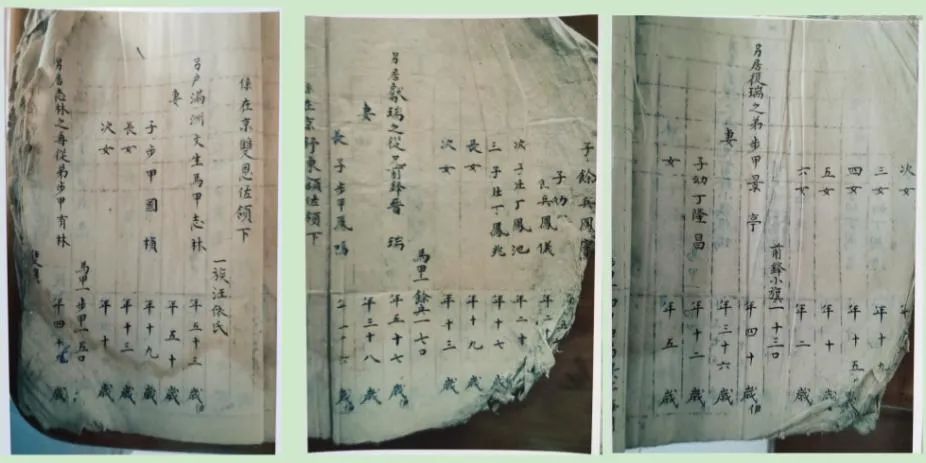 係在京雙恩佐領下
一族汪依氏
另户滿洲文生馬甲志林 年五十三歲
妻 年五十歲
子步甲國楨 年十九歲
長女 年十三歲
次女 年十歲
馬甲一步甲一五口
另居志林之再從弟步甲有林 年四十歲
子餘兵鳳
子幼
兵鳳儀 年二
次子壯丁鳳池 年二十歲
三子壯丁鳳兆 年十九歲
長女
次女 年十三歲
馬甲一餘兵一七口
另居獻瑞之從兄前鋒晉瑞 年五十七歲
妻 年三十八歲
長子步甲鳳鳴
係在京 佐領下
次女 年
三女 年十九
四女 年十五歲
五女 年十歲
六女 年二歲
前鋒小旗一十三口
另居復瑞之弟步甲景亭 年四十歲
妻 年三十六歲
子幼丁隆昌 年十二歲
女 年五歲